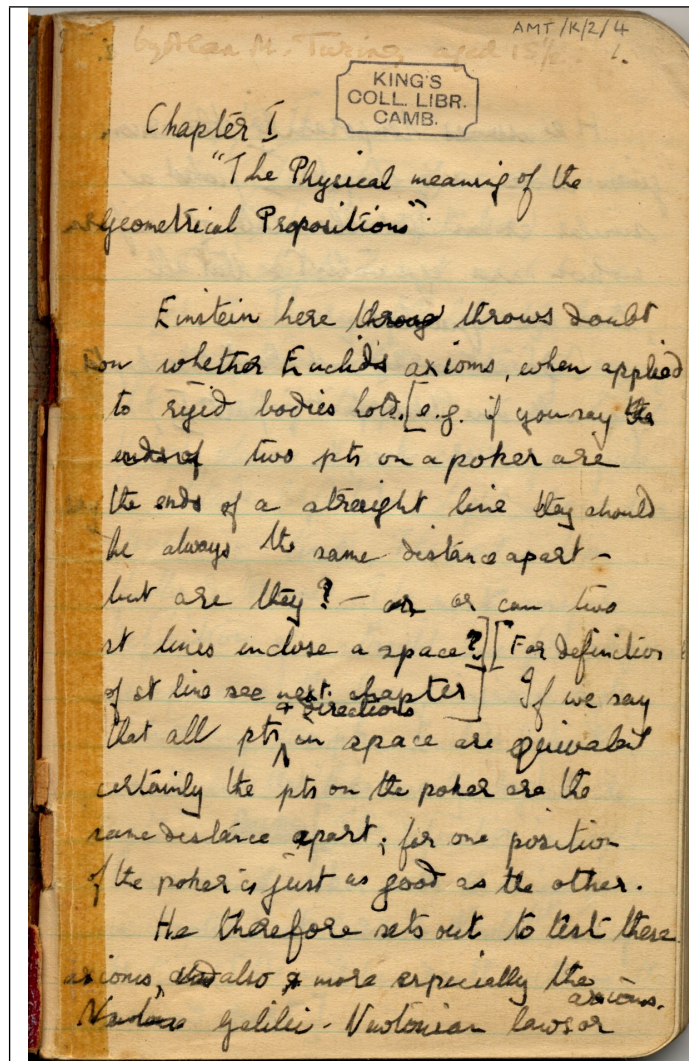 AMT/K/2/4
by Alan M. Turing, aged 15½. 1.
KING'S
COLL. LIBR.
CAMB.
Chapter I
"The Physical meaning of the
Geometrical Propositions"
Einstein here throug throws doubt
on whether Euclid's axioms, when applied
to rigid bodies hold. [e.g. if you say the
ends of two pts on a poker are
the ends of a streight line they should
be always the same distance apart –
but are they? – or or can two
st lines inclose a space?] [For definition
of st line see next chapter] If we say
+ directions
that all pts in space are equivalent
certainly the pts on the poker are the
same distance apart; for one position
of the poker is just as good as the other.
He therefore sets out to test these
axioms, and also & more especially the
axioms.
Newtons Galilei - Newtonian laws or